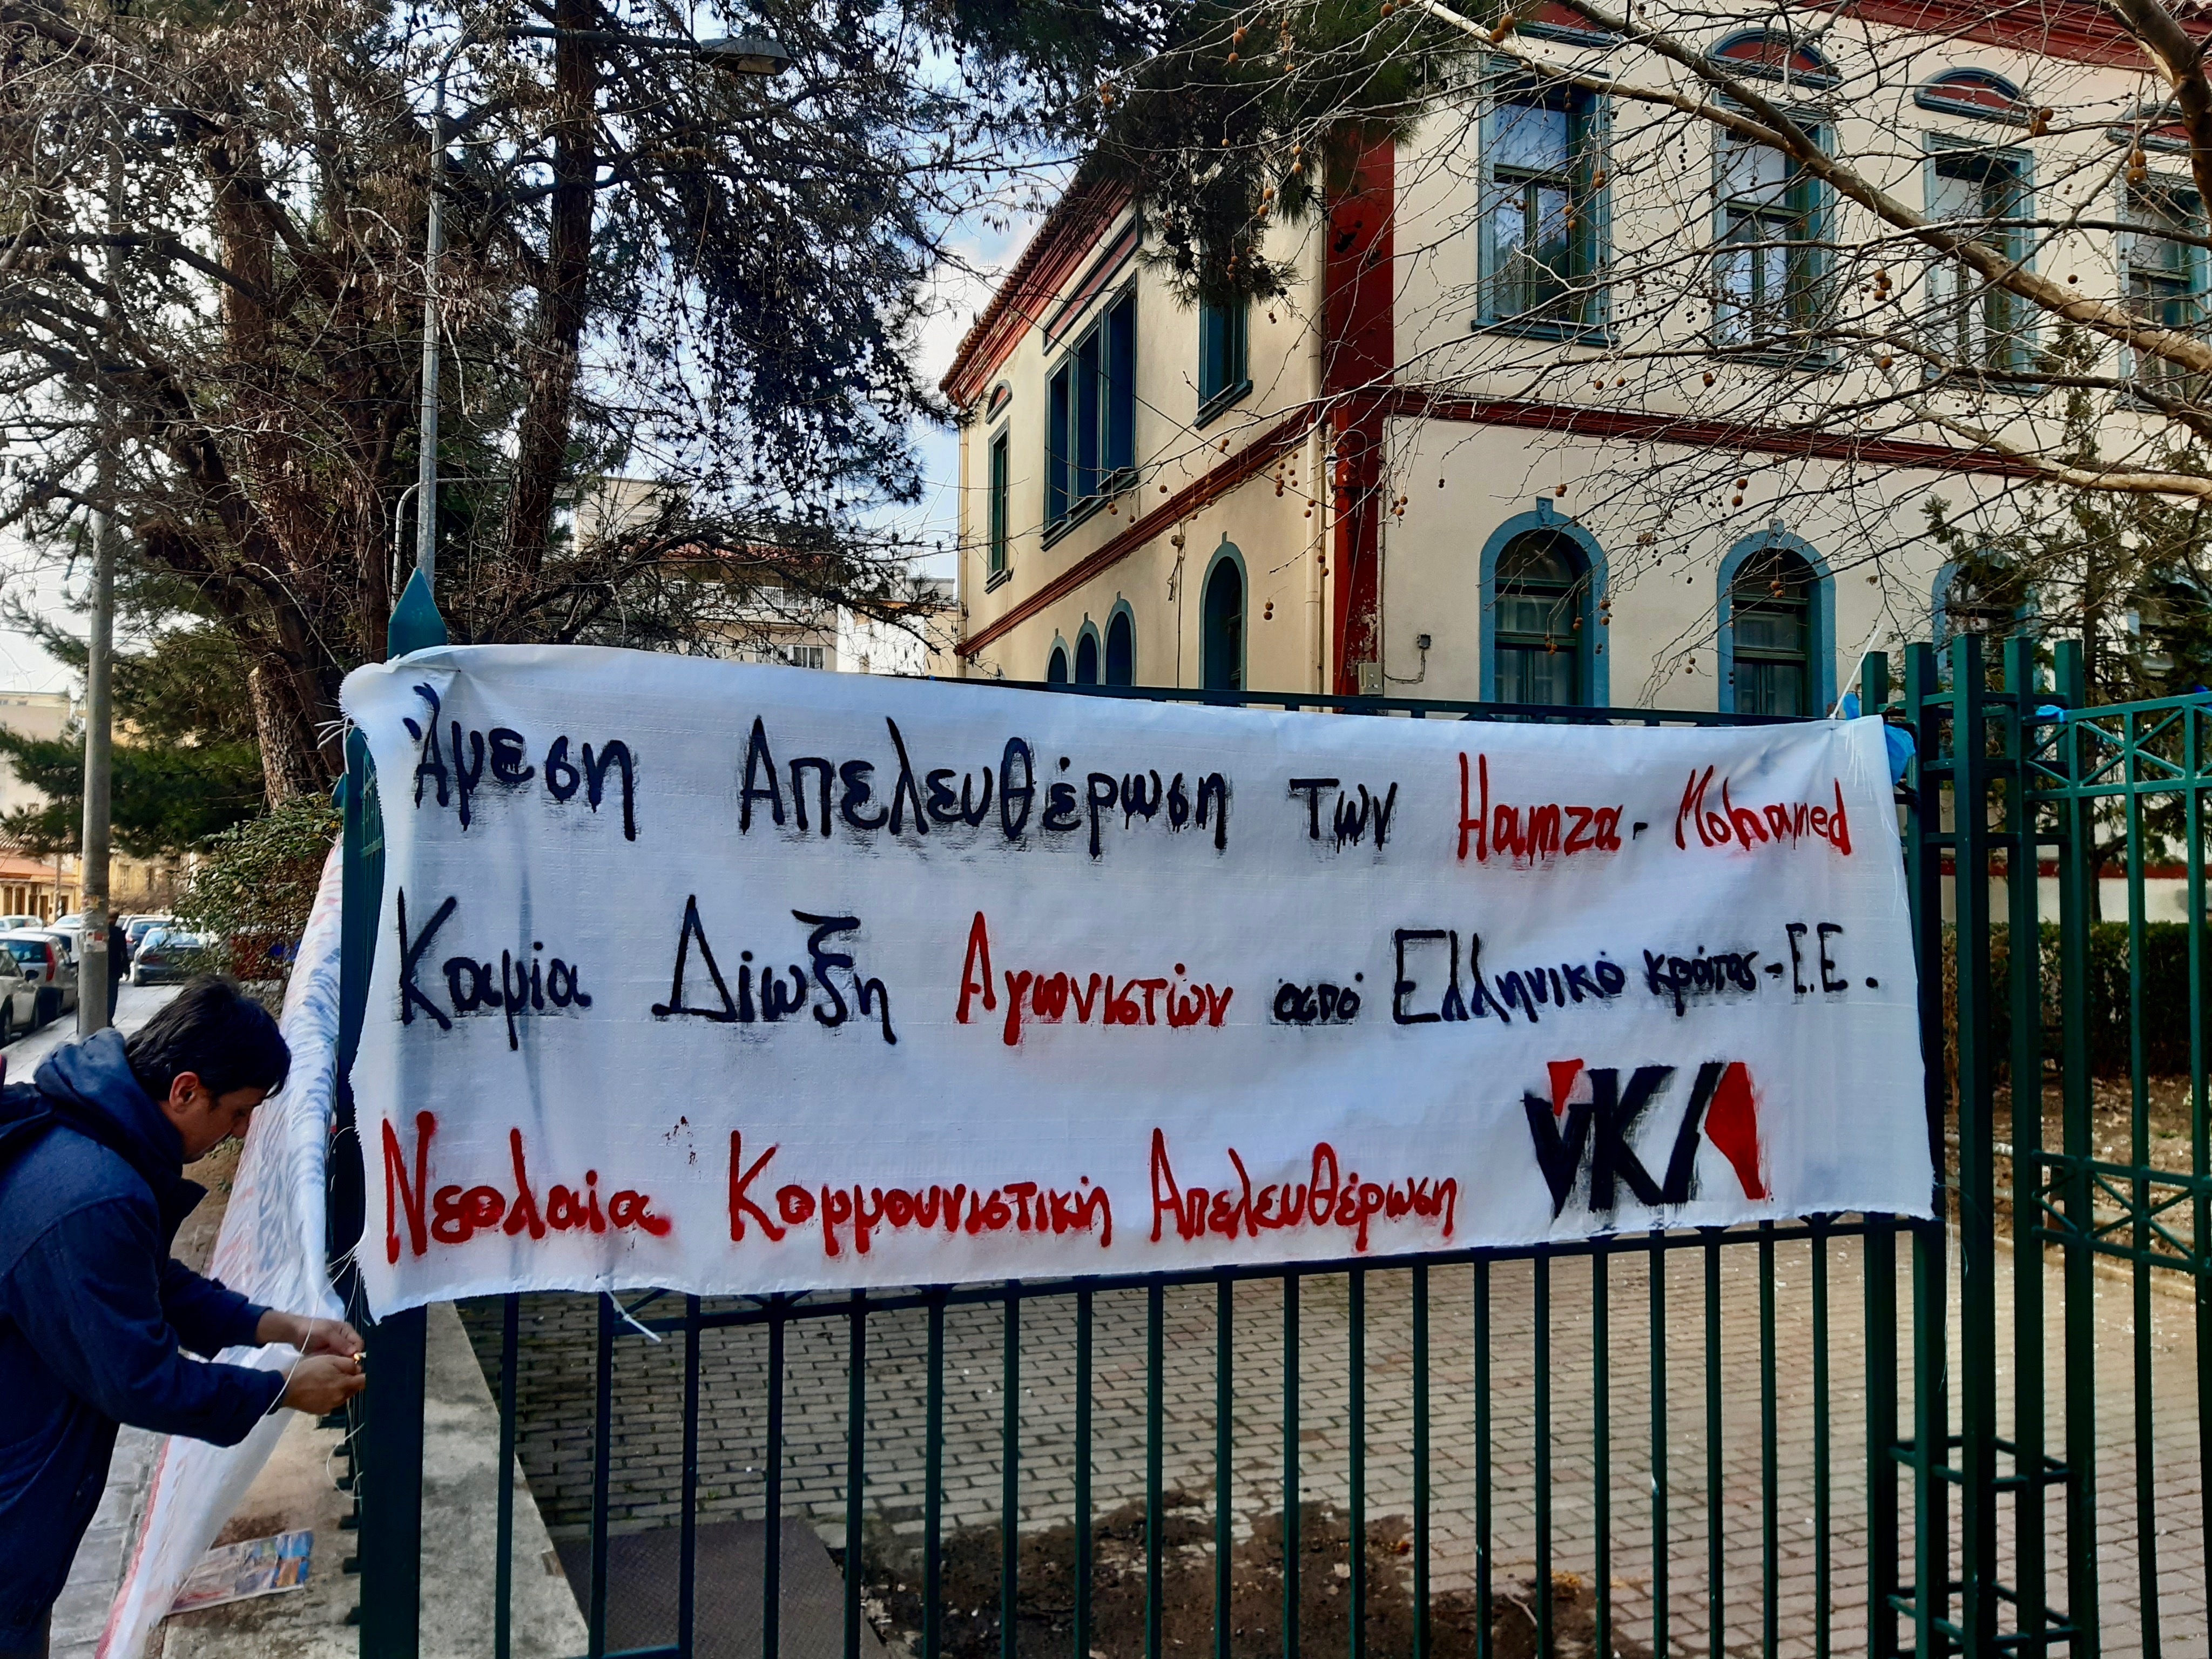 Άμεση Απελευθέρωση των Hamza - Mohamed
Καμία Δίωξη Αγωνιστών από Ελληνικό κράτος - Ε.Ε.
Νεολαία Κομμουνιστική Απελευθέρωση
νΚΑ